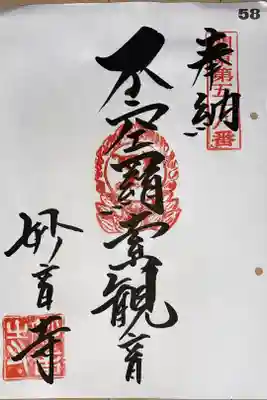 58
奉納
不空羂索観音
妙音寺